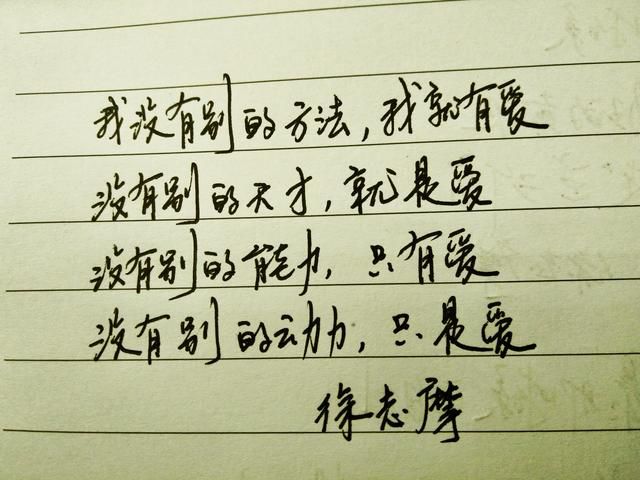 我没有别的方法,我就有爱
没有别的天才,就是爱
没有别的能力,只有爱
没有别的动力,只是爱
徐志摩